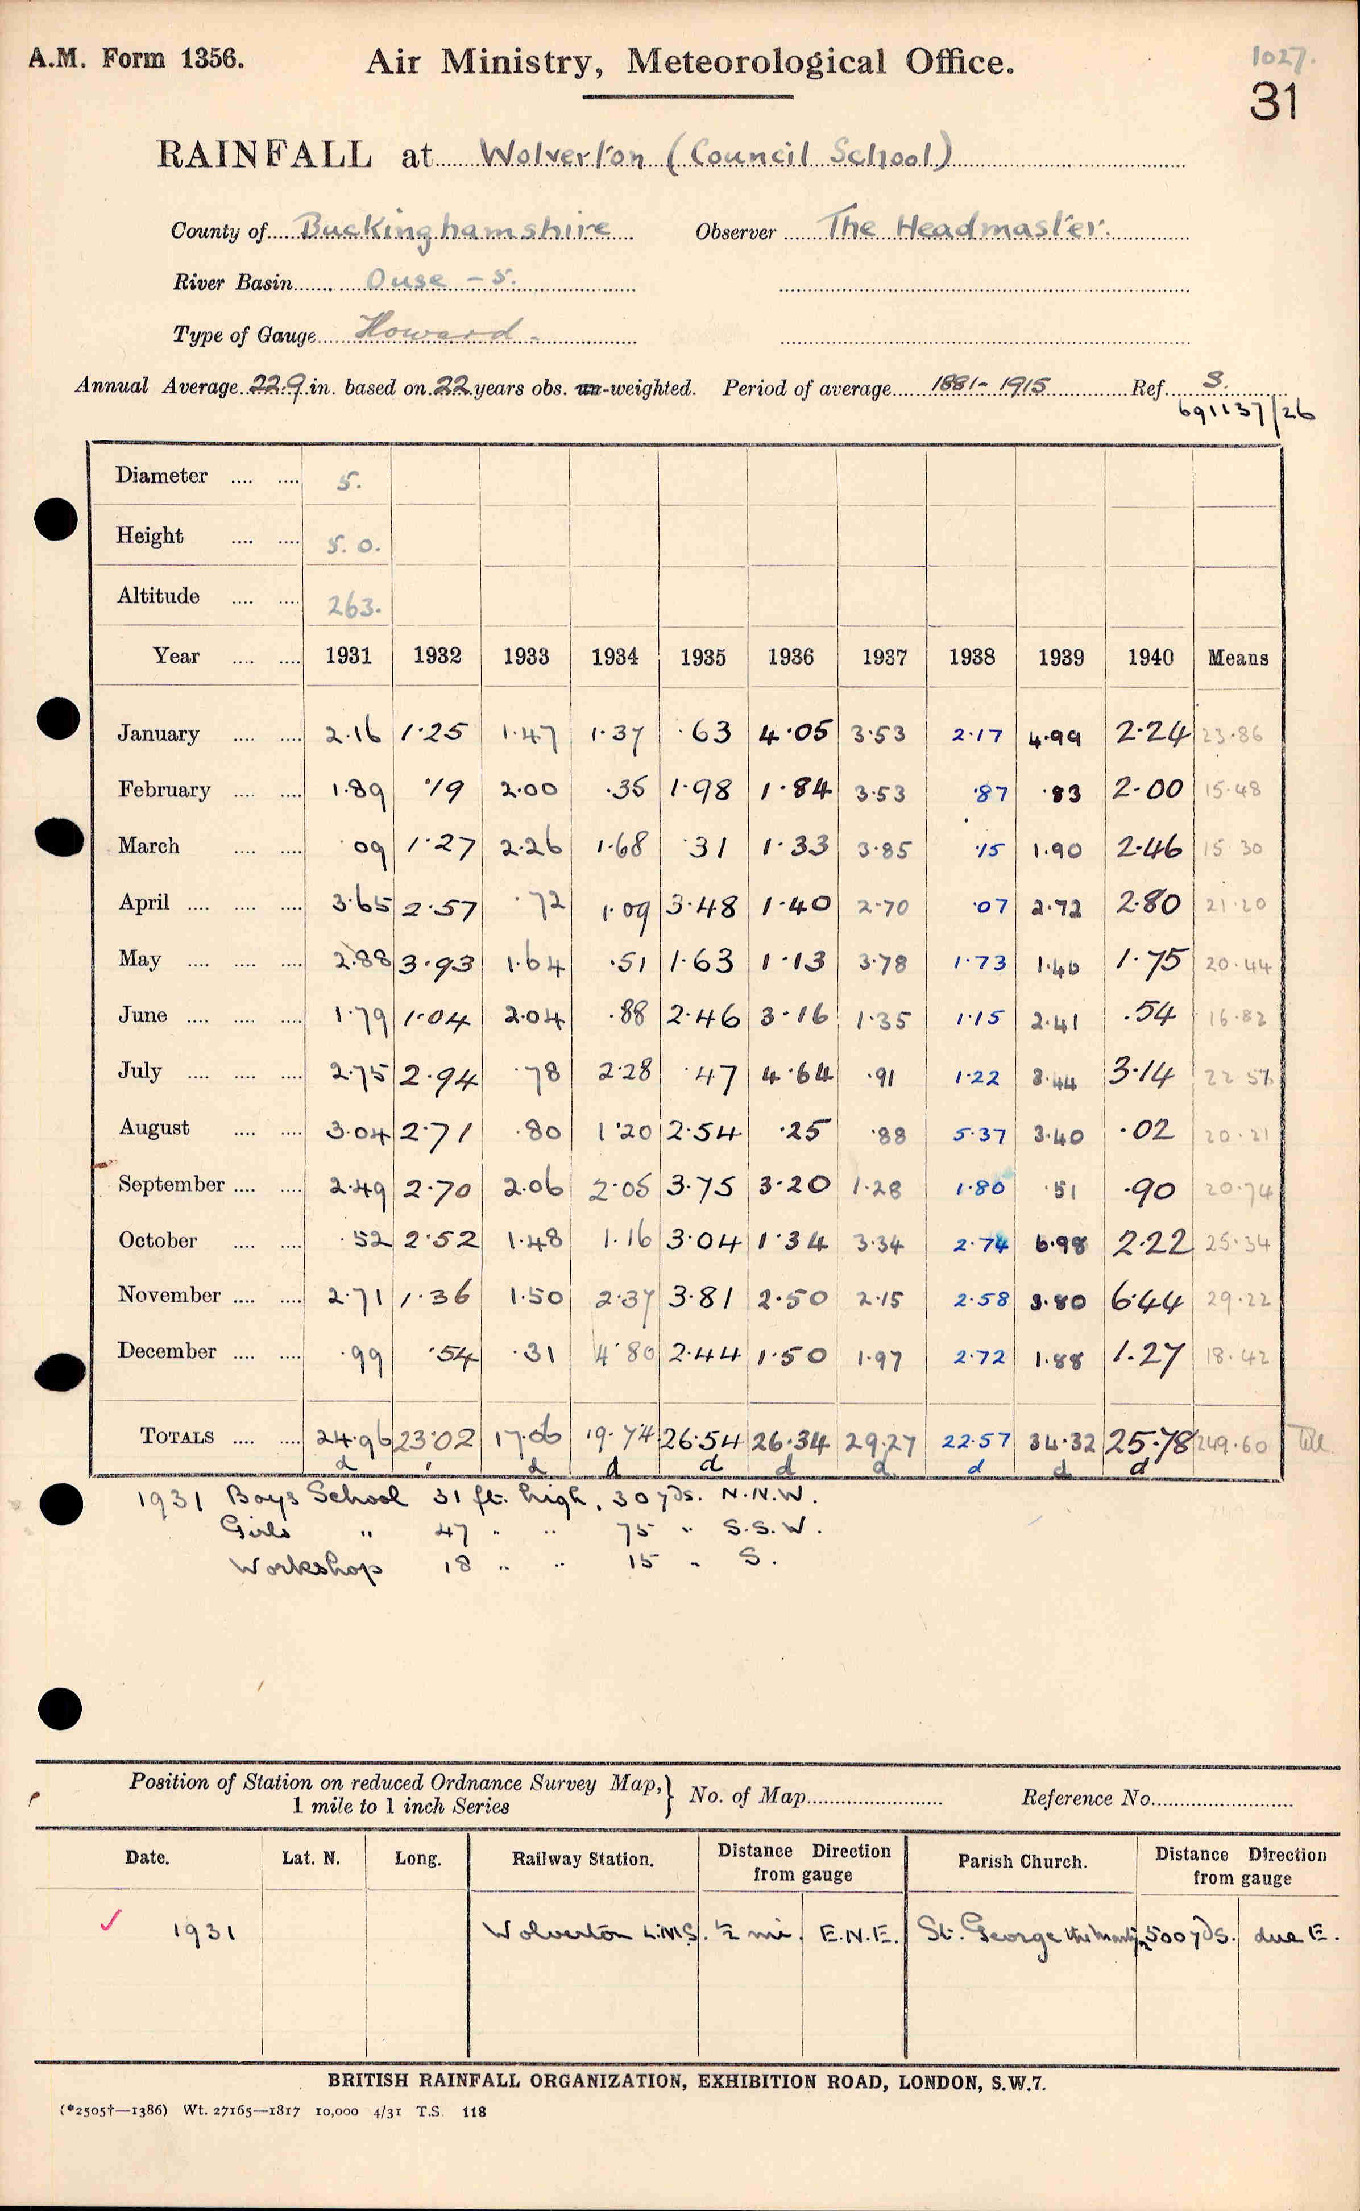 A.M. Form 1356.
Air Ministry, Meteorological Office.
1027.
31
RAINFALL at Wolverton (Council School)
County of Buckinghamshire Observer The Headmaster.
River Basin Ouse - 5.
Type of Gauge Howard.
Annual Average 22.9 in. based on 22 years obs. un-weighted. Period of average 1881-1915 Ref. S.
691137/26
Diameter .... .... 5.
Height .... .... 5. 0.
Altitude .... .... 263.
Year .... .... 1931 1932 1933 1934 1935 1936 1937 1938 1939 1940 Means
January .... .... 2.16 1.25 1.47 1.37 .63 4.05 3.53 2.17 4.99 2.24 23.86
February .... .... 1.89 .19 2.00 .35 1.98 1.84 3.53 .87 .83 2.00 15.48
March .... .... 09 1.27 2.26 1.68 .31 1.33 3.85 .15 1.90 2.46 15 30
April .... .... .... 3.65 2.57 .72 1.09 3.48 1.40 2.70 .07 2.72 2.80 21.20
May .... .... .... 2.88 3.93 1.64 .51 1.63 1.13 3.78 1.73 1.46 1.75 20.44
June .... .... .... 1.79 1.04 2.04 .88 2.46 3.16 1.35 1.15 2.41 .54 16.82
July .... .... .... 2.75 2.94 .78 2.28 .47 4.64 .91 1.22 3.44 3.14 22 57
August .... .... 3.04 2.71 .80 1.20 2.54 .25 .88 5.37 3.40 .02 20.21
September .... .... 2.49 2.70 2.06 2.05 3.75 3.20 1.28 1.80 .51 .90 20.74
October .... .... .52 2.52 1.48 1.16 3.04 1.34 3.34 2.74 6.98 2.22 25.34
November .... .... 2.71 1.36 1.50 2.37 3.81 2.50 2.15 2.58 3.80 6.44 29.22
December .... .... .99 .54 .31 4.80 2.44 1.50 1.97 2.72 1.88 1.27 18.42
TOTALS .... .... 24.96 23.02 17.06 19.74 26.54 26.34 29.27 22.57 34.32 25.78 249.60
d d d d d d d d d
1931 Boys School 31 ft. high, 30 yds. N.N.W.
Girls " 47 " " 75 " S.S.W.
Workshop 18 " " 15 " S.
Position of Station on reduced Ordnance Survey Map, } No. of Map Reference No.
1 mile to 1 inch Series
Date. Lat. N. Long. Railway Station. Distance Direction from gauge Parish Church. Distance Direction from gauge
1931 Wolverton L.M.S. ½ mi. E.N.E. St. George the Martyr 500 yds. due E.
BRITISH RAINFALL ORGANIZATION, EXHIBITION ROAD, LONDON, S.W.7.
(*2505†—1386) Wt. 27165—1817 10,000 4/31 T.S. 118